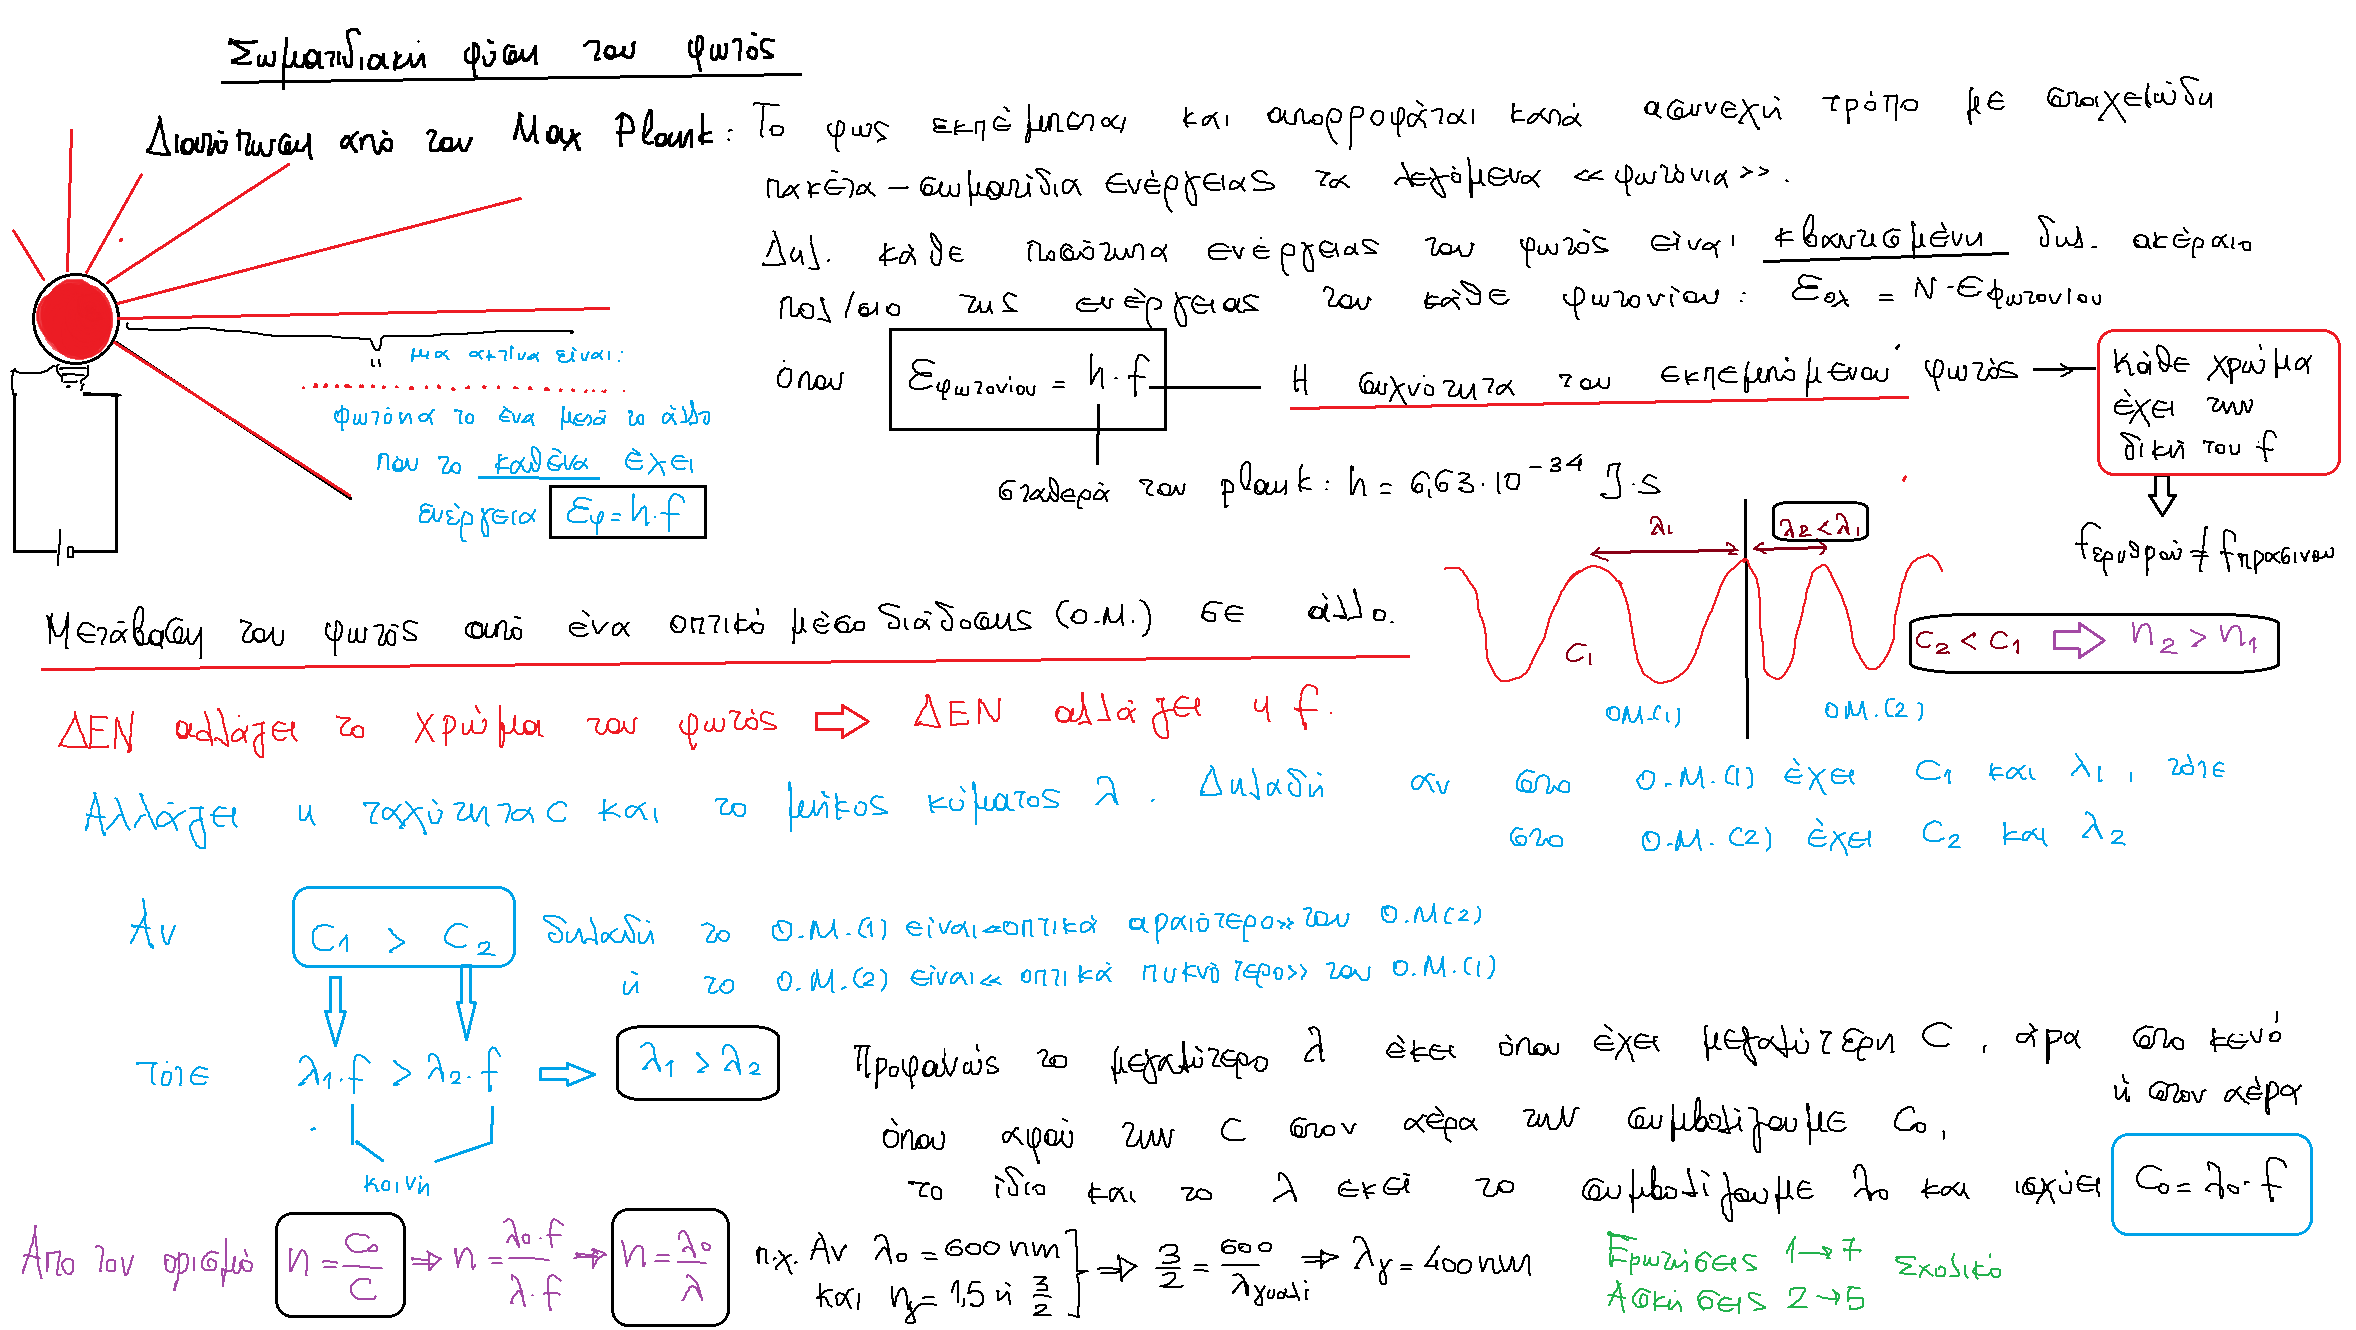 Σωματιδιακή φύση του φωτός
Διατύπωση από τον Max Plank: Το φως εκπέμπεται και απορροφάται κατά ασυνεχή τρόπο με στοιχειώδη
πακέτα – σωματίδια ενέργειας τα λεγόμενα «φωτόνια».
Δηλ. κάθε ποσότητα ενέργειας του φωτός είναι κβαντισμένη δηλ. ακέραιο
πολ/σιο της ενέργειας του κάθε φωτονίου: Εολ = Ν·Εφωτονίου
όπου Εφωτονίου = h·f Η συχνότητα του εκπεμπόμενου φωτός →
κάθε χρώμα
έχει την
δική του f
fερυθρού ≠ fπρασινου
σταθερά του plank: h = 6,63·10⁻³⁴ J·s
μια ακτίνα είναι:
φωτόνια το ένα μετά το άλλο
που το καθένα έχει
ενέργεια Εφ = h·f
λ₁
λ₂ < λ₁
C₁
C₂ < C₁ ⇒ n₂ > n₁
ΟΜ.(1)
ΟΜ.(2)
Μετάβαση του φωτός από ένα οπτικό μέσο διάδοσης (Ο.Μ.) σε άλλο.
ΔΕΝ αλλάζει το χρώμα του φωτός ⇒ ΔΕΝ αλλάζει η f.
Αλλάζει η ταχύτητα C και το μήκος κύματος λ. Δηλαδή αν στο Ο.Μ.(1) έχει C₁ και λ₁, τότε
στο Ο.Μ.(2) έχει C₂ και λ₂
Αν C₁ > C₂ δηλαδή το Ο.Μ.(1) είναι «οπτικά αραιότερο» του Ο.Μ(2)
ή το Ο.Μ.(2) είναι «οπτικά πυκνότερο» του Ο.Μ.(1)
τότε λ₁·f > λ₂·f ⇒ λ₁ > λ₂
κοινή
Προφανώς το μεγαλύτερο λ έχει όπου έχει μεγαλύτερη C, άρα στο κενό
ή στον αέρα
όπου αφού την C στον αέρα την συμβολίζουμε C₀,
το ίδιο και το λ εκεί το συμβολίζουμε λ₀ και ισχύει C₀ = λ₀·f
Απο τον ορισμό n = C₀/C ⇒ n = λ₀·f/λ·f → n = λ₀/λ
π.χ. Αν λ₀ = 600 nm
και nγ = 1,5 ή 3/2
⇒ 3/2 = 600/λγυαλί ⇒ λγ = 400nm
Ερωτήσεις 1→7
Ασκήσεις 2→5
Σχολικό